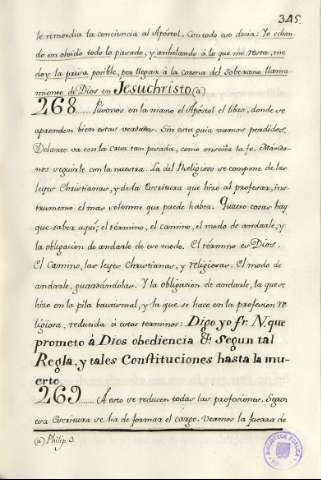 345.
le remordia la conciencia al Apóstol. Con todo eso decia: Yo echan-
do en olvido todo lo pasado, y anhelando à lo que me resta, me
doy la priesa posible, por llegar à la corona del soberano llama-
miento de Dios en Jesuchristo (a)
268..... Pusonos en la mano el Apóstol el libro, donde se
aprenden bien estas verdades. Sin esta guia vamos perdidos.
Delante va con la cruz tan pesada, como enseña la fe. Mande-
nos seguirle con la nuestra. La del Religioso se compone de las
leyes Christianas, y de la Escritura que hizo al profesar, ins-
trumento el mas solemne que puede haber. Quatro cosas hay
que saber aquí; el término, el camino, el modo de andarle, y
la obligacion de andarle de ese modo. El término es Dios.
El Camino, las leyes Christianas, y religiosas. El modo de
andarle, guardandolas. Y la obligacion de andarle, la que se
hizo en la pila bautismal, y la que se hace en la profesion re-
ligiosa, reducida à estos terminos: Digo yo fr. N. que
prometo à Dios obediencia &. Segun tal
Regla, y tales Constituciones hasta la mu-
erte
269..... A esto se reducen todas las profesiones. Segun
esa Escritura se ha de formar el cargo. Veamos la fuerza de
(a) Philip. 3.
BIBLIOTECA PUBLICA